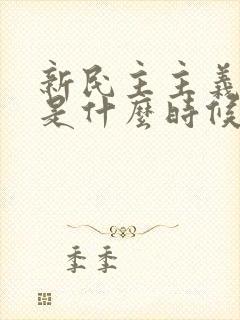 新民主主義
是什麼時候
季季